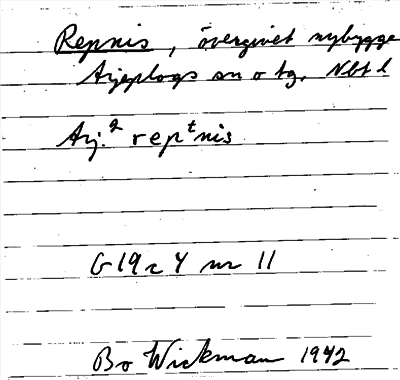 Repnis, övergivet nybygge
Arjeplogs sn o tg. Nbt l
Arj.² repᵗnis
G 19 c 4 nr 11
Bo Wickman 1942